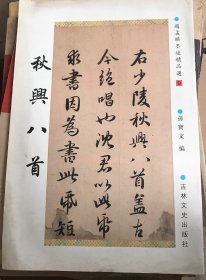 趙孟頫墨跡精品選
孫寶文 編
吉林文史出版社
右少陵秋興八首蓋古
今絕唱也沈君以此紙
求書因為書此紙短
秋興八首